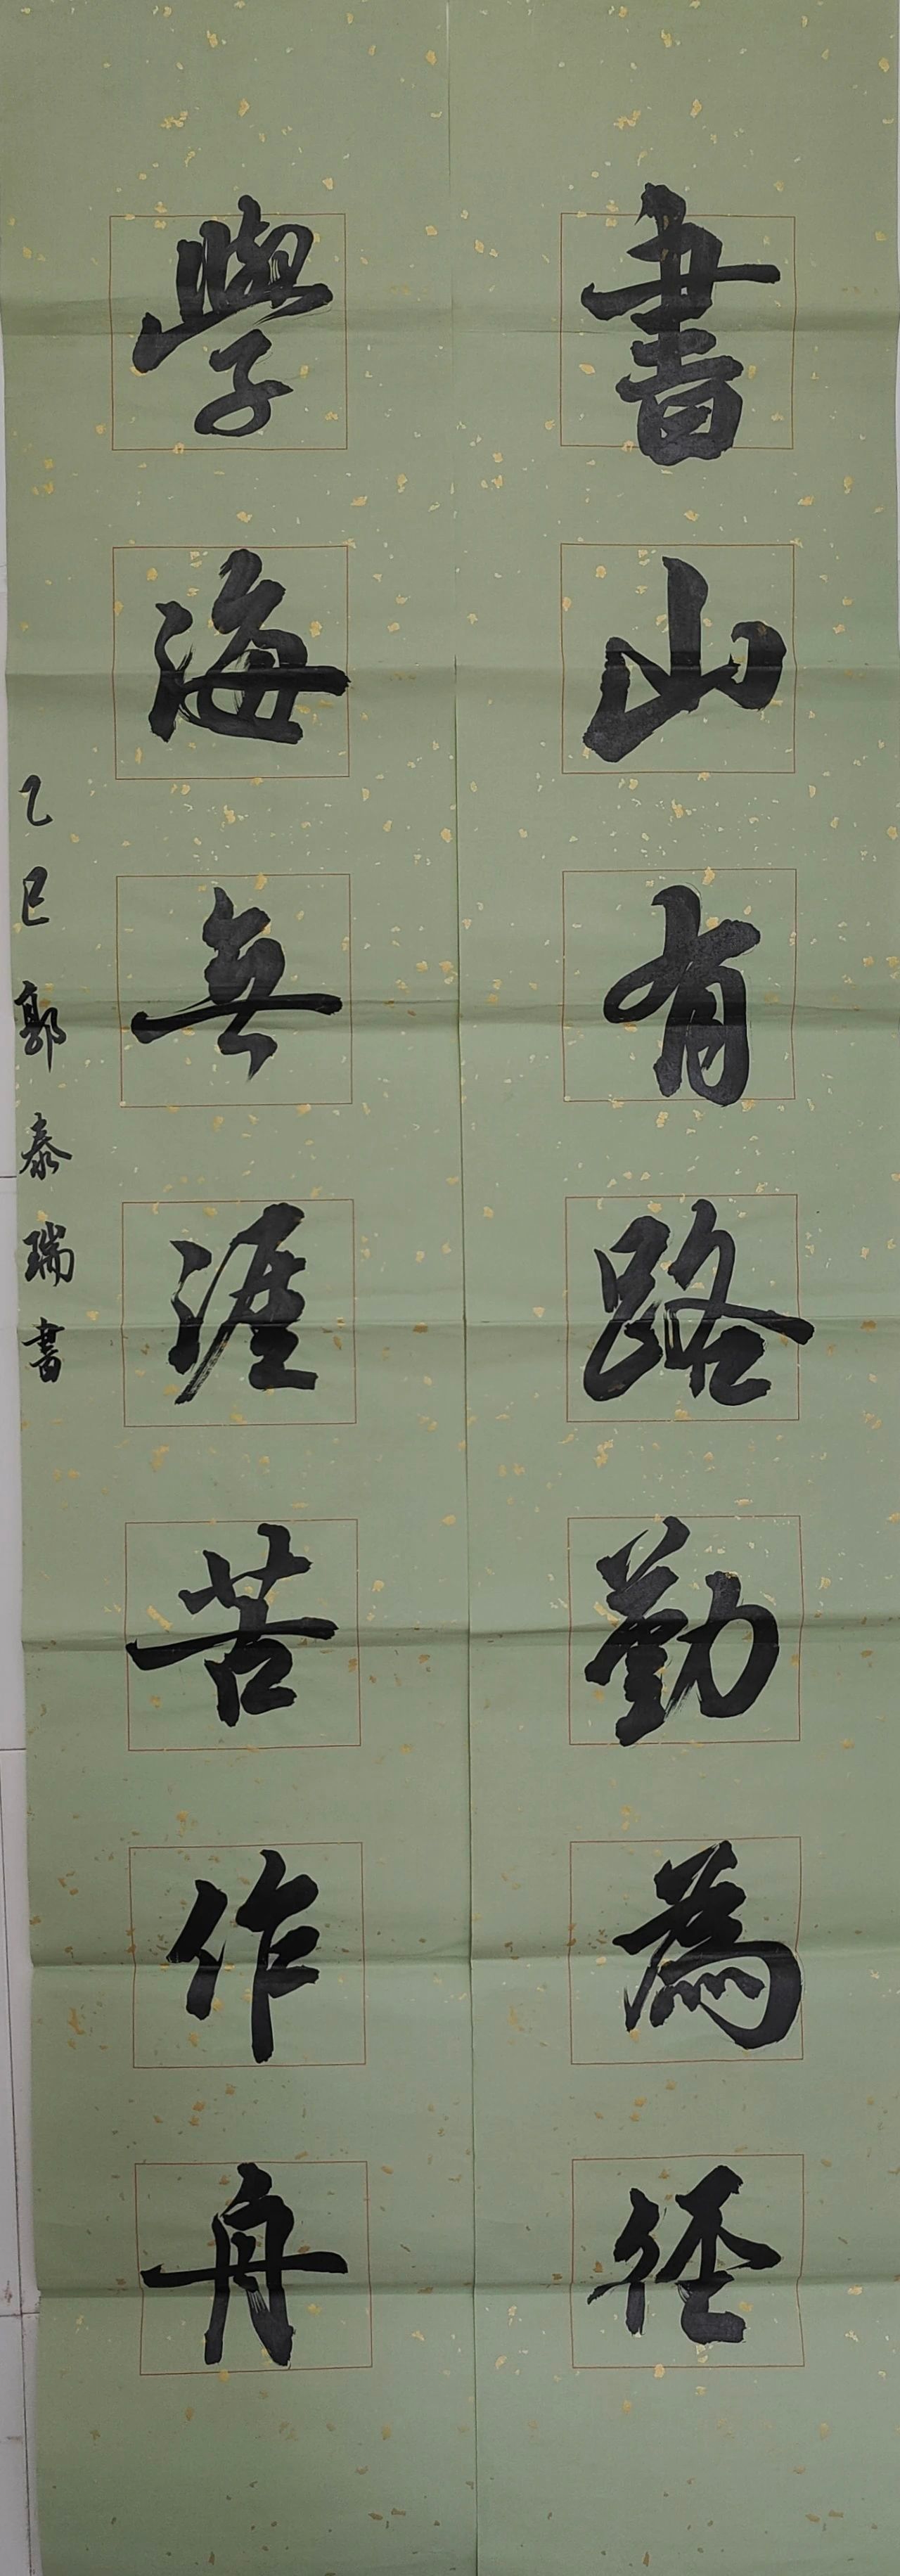 書山有路勤為徑
學海無涯苦作舟
乙巳郭泰瑞書